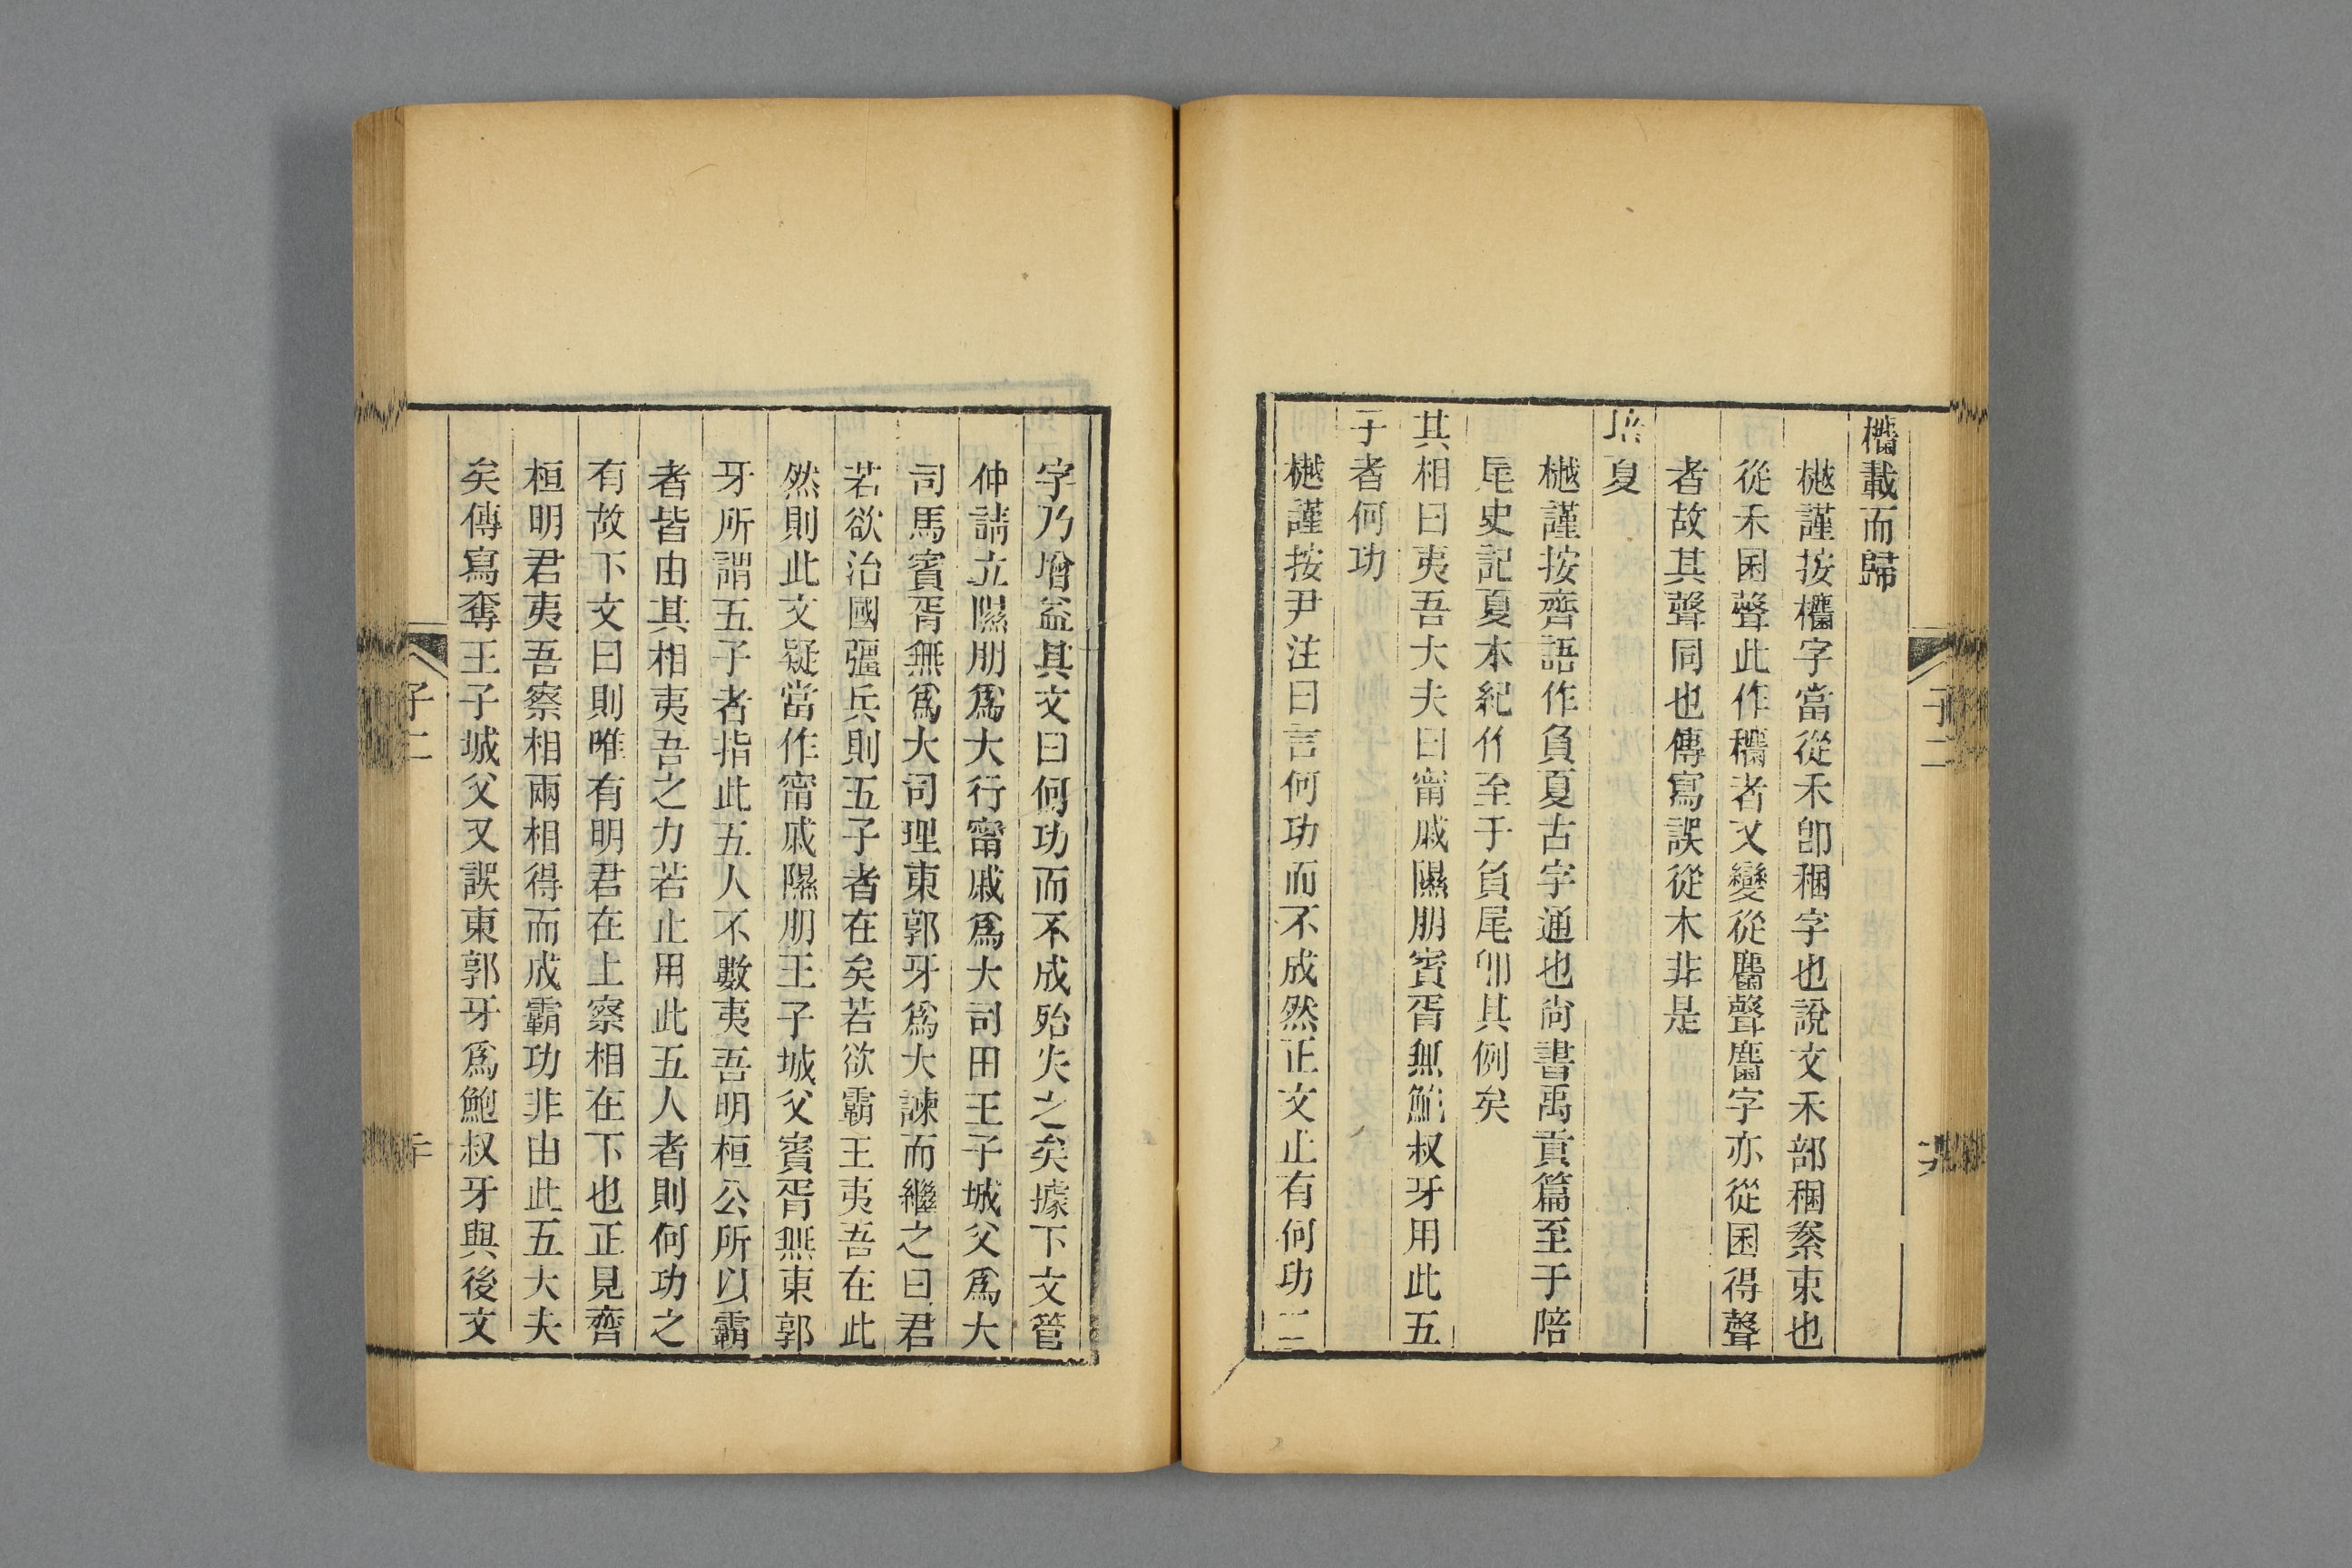 載而歸
樾謹按字當從禾卽稛字也說文禾部稛絭束也
從禾囷聲此作者又變從麕聲麕字亦從囷得聲
者故其聲同也傳寫誤從木非是
培夏
樾謹按齊語作負夏古字通也尙書禹貢篇至于陪
尾史記夏本紀作至于負尾卽其例矣
其相曰夷吾大夫曰甯戚隰朋賓胥無鮑叔牙用此五
子者何功
樾謹按尹注曰言何功而不成然正文止有何功二
子二
字乃增益其文曰何功而不成殆失之矣據下文管
仲請立隰朋爲大行甯戚爲大司田王子城父爲大
司馬賓胥無爲大司理東郭牙爲大諫而繼之曰君
若欲治國彊兵則五子者在矣若欲霸王夷吾在此
然則此文疑當作甯戚隰朋王子城父賓胥無東郭
牙所謂五子者指此五人不數夷吾明桓公所以霸
者皆由其相夷吾之力若止用此五人者則何功之
有故下文曰則唯有明君在上察相在下也正見齊
桓明君夷吾察相兩相得而成霸功非由此五大夫
矣傳寫奪王子城父又誤東郭牙爲鮑叔牙與後文
子二